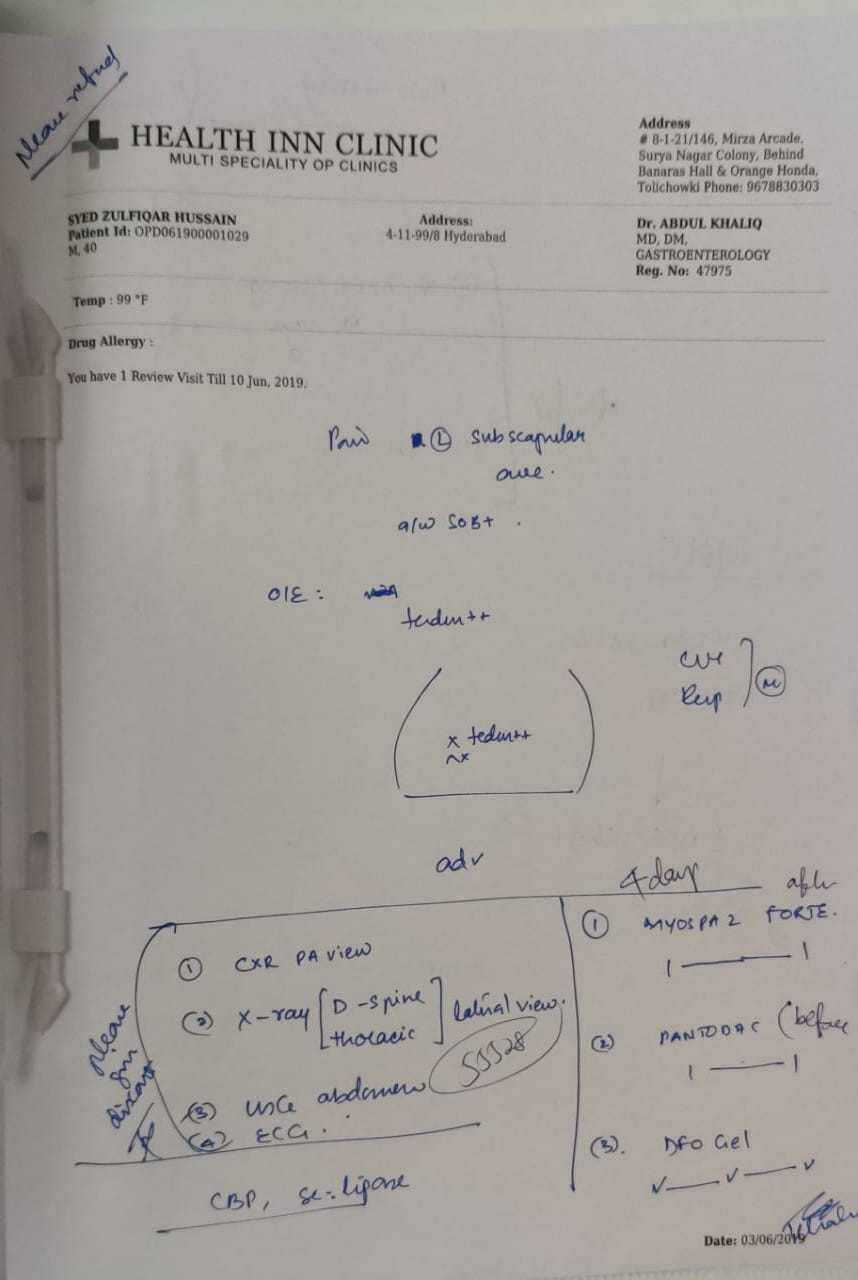 Please refund
HEALTH INN CLINIC
MULTI SPECIALITY OP CLINICS
Address
# 8-1-21/146, Mirza Arcade,
Surya Nagar Colony, Behind
Banaras Hall & Orange Honda,
Tolichowki Phone: 9678830303
SYED ZULFIQAR HUSSAIN
Patient Id: OPD061900001029
M, 40
Address:
4-11-99/8 Hyderabad
Dr. ABDUL KHALIQ
MD, DM,
GASTROENTEROLOGY
Reg. No: 47975
Temp : 99 °F
Drug Allergy :
You have 1 Review Visit Till 10 Jun, 2019.
Pain (L) subscapular
area.
a/w SOB+ .
O/E :
tender++
CVS
Resp
x tender++
adv
Please
give
discount
(1) CXR PA view
(2) X-ray [D-spine
thoracic] lateral view.
(3) USG abdomen
(4) ECG.
CBP, Se. lipase
4 days after
(1) MYOSPAZ FORTE.
1 — 1
(2) PANTODAC (before
1 — 1
(3). DFO Gel
✓ — ✓ — ✓
Date: 03/06/2019